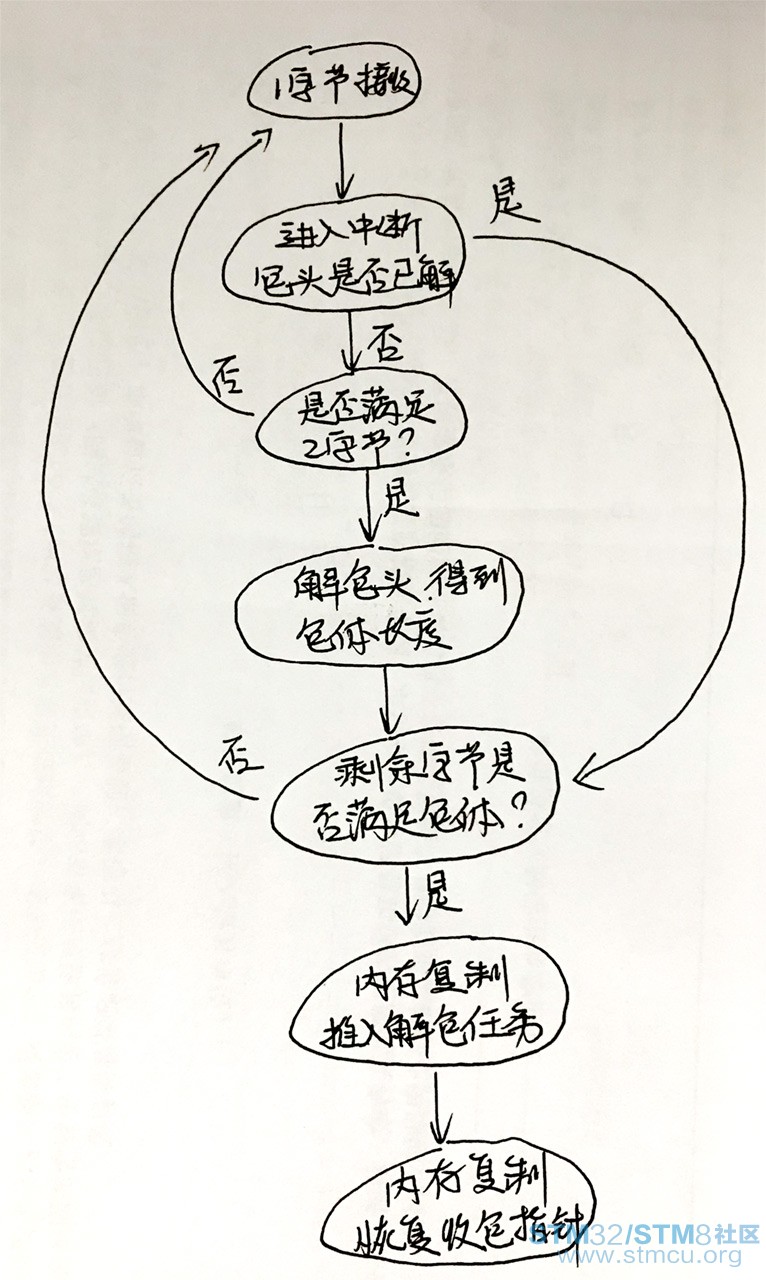 1字节接收
是
进入中断
包头是否已解
否
否
是否满足
2字节?
是
解包头,得到
包体长度
否
剩余字节是
否满足包体?
是
内存复制
推入解包任务
内存复制
恢复收包指针
STM32/STM8社区
www.stmcu.org